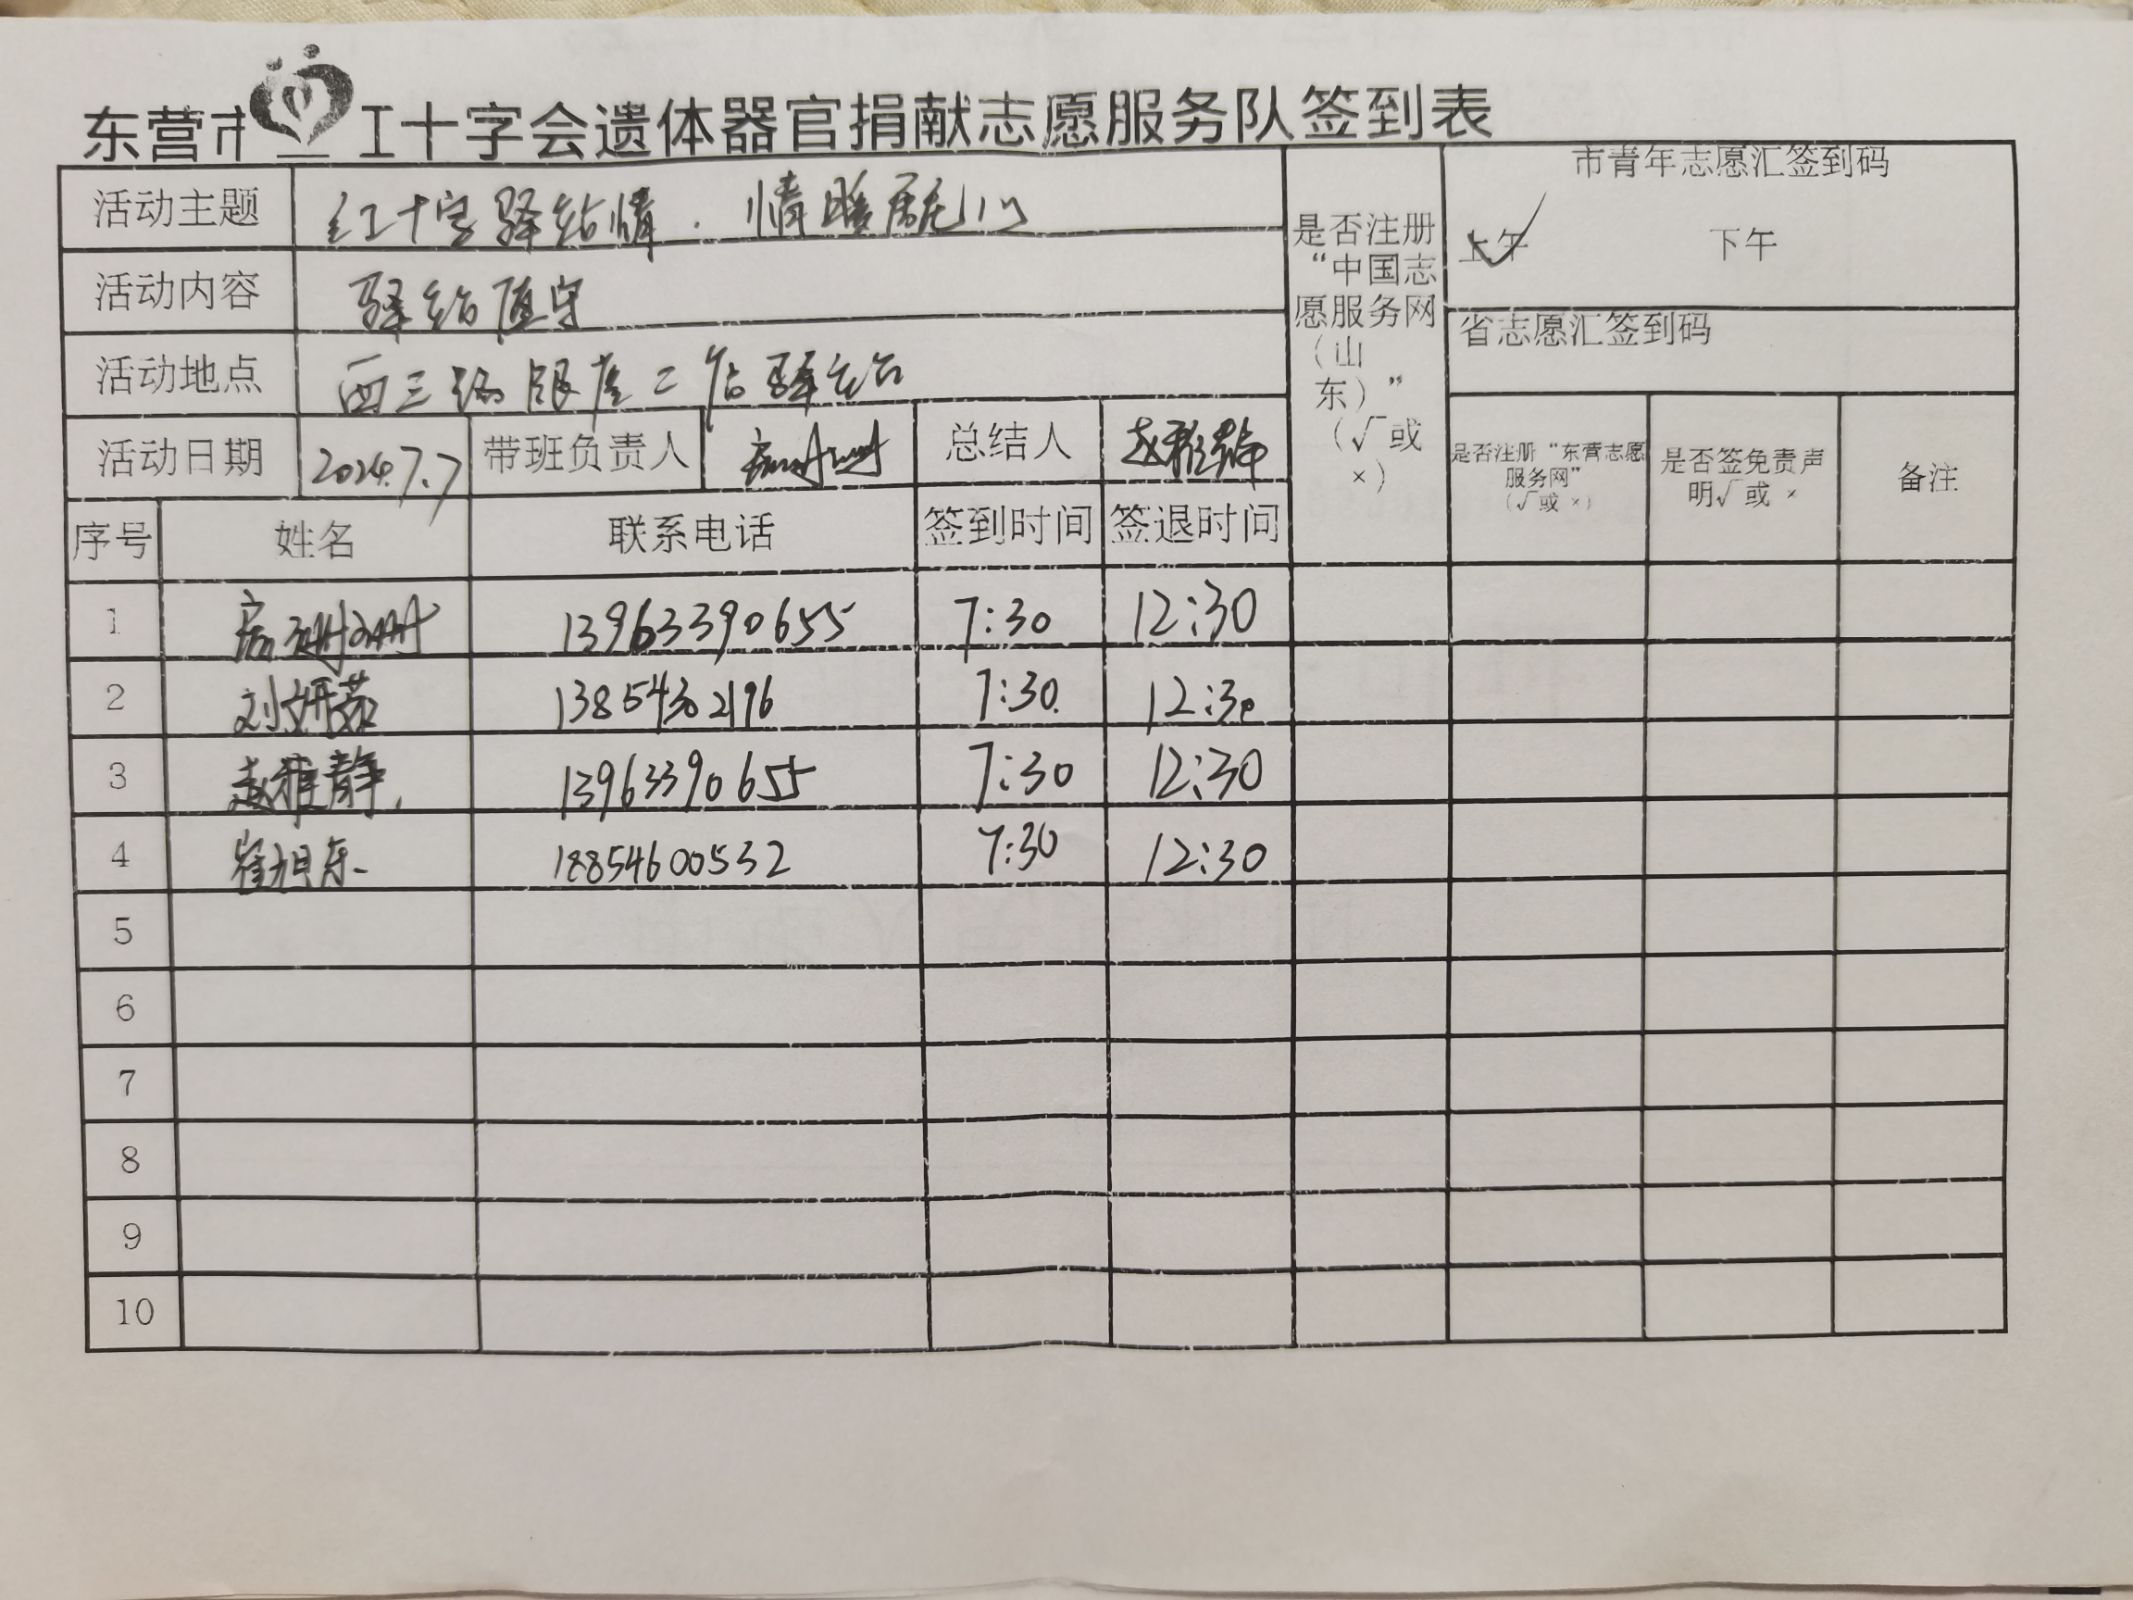 东营市红十字会遗体器官捐献志愿服务队签到表
活动主题 红十字驿站情．情暖
活动内容 驿站值守
活动地点 西三路银座二店驿站
活动日期 2024.7.7 带班负责人 总结人 赵雅静
是否注册
“中国志
愿服务网
（山
东）”
（√或
×）
市青年志愿汇签到码
上午 下午
省志愿汇签到码
是否注册“东营志愿
服务网”
（√或 ×）
是否签免责声
明√或 ×
备注
序号 姓名 联系电话 签到时间 签退时间
1 13963390655 7:30 12:30
2 刘妍茹 13854302196 7:30. 12:30
3 赵雅静 13963390655 7:30 12:30
4 崔旭东 18854600532 7:30 12:30
5
6
7
8
9
10